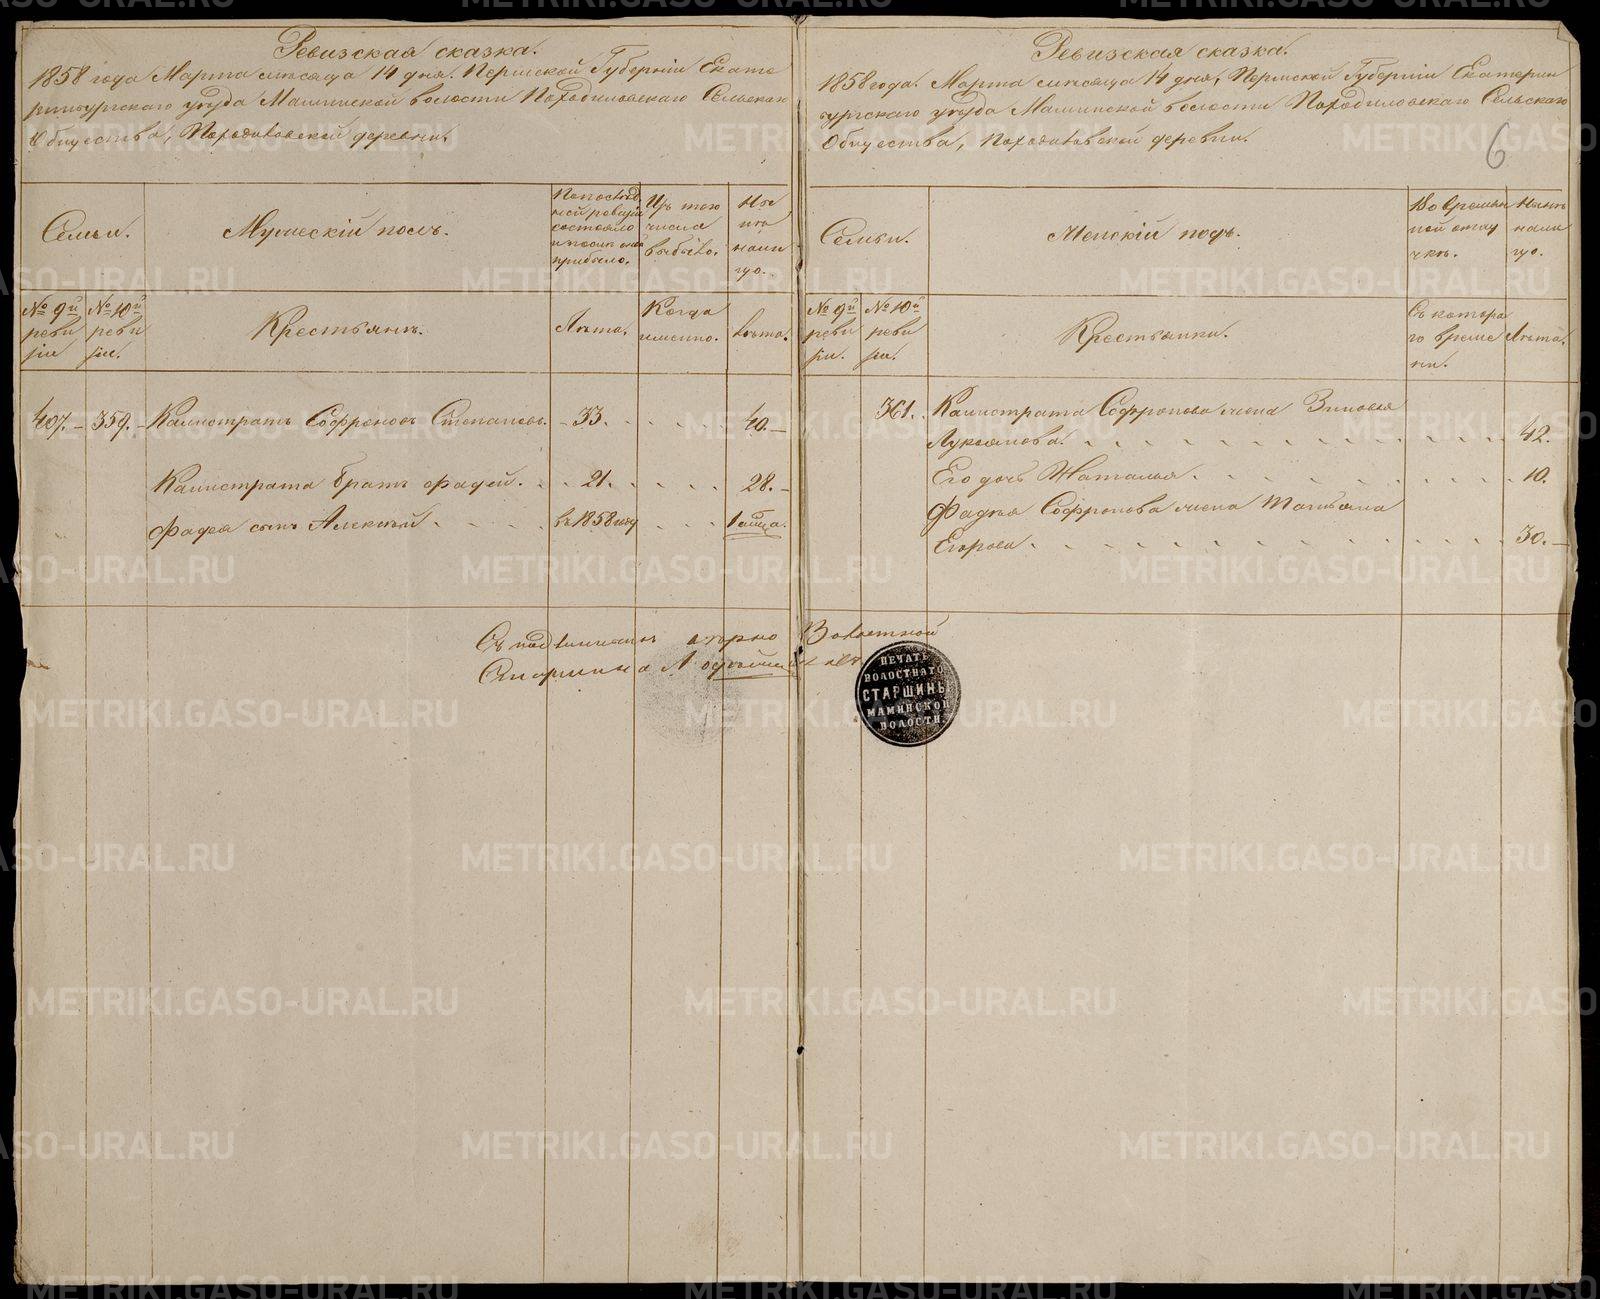 Ревизская сказка.
1858 года Марта месяца 14 дня. Пермской Губерніи Екате
ринбургскаго уѣзда Маминской волости Походиловскаго Сельскаго
Общества, Походиловской деревни.
Семьи.
Мужескій полъ.
По послѣд
ней ревизіи
состояло
и послѣ она
прибыло.
Изъ того
числа
выбыло.
Ны
нѣ
нали
цо.
№ 9й
реви
зіи
№ 10й
реви
зіи.
Крестьянъ.
Лѣта.
Когда
именно.
Лѣта.
407. 359. Калистратъ Софроновъ Степановъ. 33. 40.
Калистрата братъ Фадей. 21. 28.
Фадея сынъ Алексѣй въ 1858 году 1 мѣсяца.
Ревизская сказка.
1858 года. Марта месяца 14 дня, Пермской Губерніи Екатерин
бургскаго уѣзда Маминской волости Походиловскаго Сельскаго
Общества, Походиловской деревни.
6
Семьи.
Женскій полъ.
Во времен
ной отлу
чкѣ.
Нынѣ
нали
цо.
№ 9й
реви
зіи.
№ 10й
реви
зіи.
Крестьянки.
Съ котора
го време
ни.
Лѣта.
361. Калистрата Софронова жена Зиновья
Лукоянова. 42.
Его дочь Наталья. 10.
Фадея Софронова жена Татьяна
Егорова. 30.
Съ подлиннымъ вѣрно Волостной
Старшина
ПЕЧАТЬ
ВОЛОСТНАГО
СТАРШИНЫ
МАМИНСКОЙ
ВОЛОСТИ.
METRIKI.GASO-URAL.RU